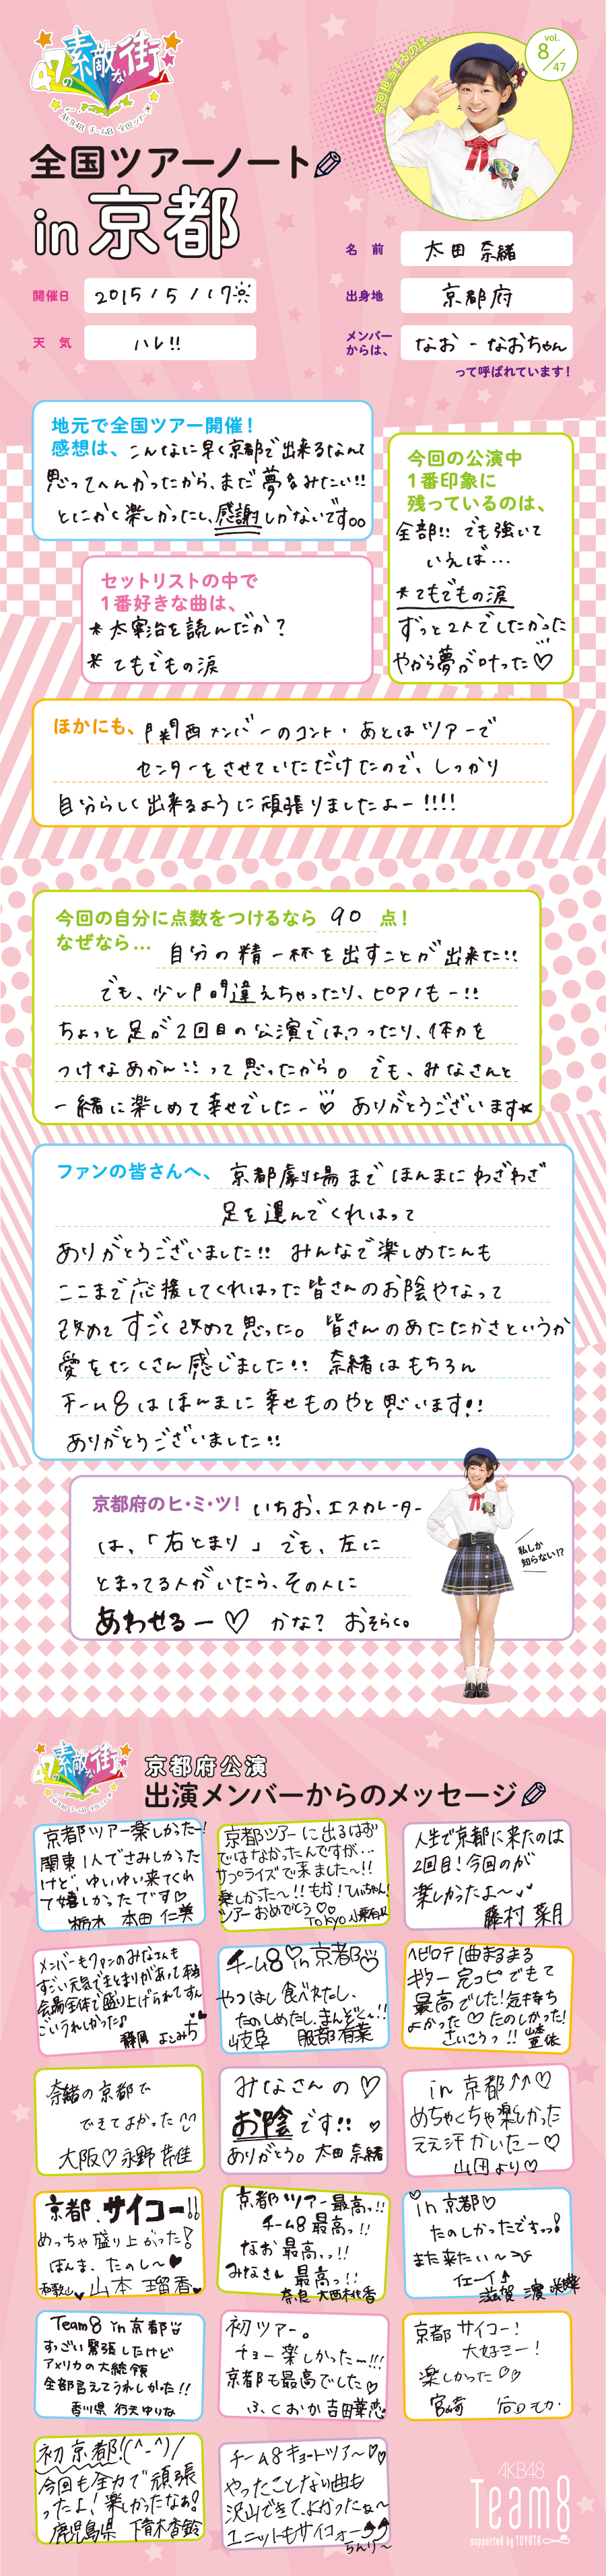 47の素敵な街へ
AKB48 チーム8 全国ツアー
今回担当するのは…
vol.
8/47
全国ツアーノート
in 京都
名 前
太田 奈緒
開催日
2015/5/17
出身地
京都府
天 気
ハレ!!
メンバー
からは、
なお - なおちゃん
って呼ばれています!
地元で全国ツアー開催!
感想は、こんなに早く京都で出来るなんて
思ってへんかったから、まだ夢みたい!!
とにかく楽しかったし、感謝しかないです。。
今回の公演中
1番印象に
残っているのは、
全部!! でも強いて
いえば…
*てもでもの涙
ずっと2人でしたかった
やから夢が叶った♡
セットリストの中で
1番好きな曲は、
*太宰治を読んだか?
*てもでもの涙
ほかにも、関西メンバーのコント・あとはツアーで
センターをさせていただけたので、しっかり
自分らしく出来るように頑張りましたよー!!!!
今回の自分に点数をつけるなら 90 点!
なぜなら… 自分の精一杯を出すことが出来た!!
でも、少し間違えちゃったり、ピアノもー!!
ちょっと足が2回目の公演では、つったり、体力を
つけなあかん!!って思ったから。でも、みなさんと
一緒に楽しめて幸せでしたー♡ ありがとうございます☆
ファンの皆さんへ、京都劇場まで ほんまに わざわざ
足を運んでくれはって
ありがとうございました!! みんなで楽しめたんも
ここまで応援してくれはった皆さんのお陰やなって
改めて すごく改めて思った。皆さんのあたたかさというか
愛をたくさん感じました!! 奈緒はもちろん
チーム8はほんまに幸せものやと思います!!
ありがとうございました!!
京都府のヒ・ミ・ツ! いちお、エスカレーター
は、「右とまり」でも、左に
とまってる人がいたら、その人に
あわせるー♡ かな? おそらく。
私しか
知らない!?
47の素敵な街へ
AKB48 チーム8 全国ツアー
京都府公演
出演メンバーからのメッセージ
京都ツアー楽しかったー!
関東1人でさみしかった
けど、ゆいゆい来てくれ
て嬉しかったです♡
栃木 本田 仁美
京都ツアーに出るはお
ではなかったんですが…
サプライズで来ました〜!!
楽しかった〜!!
ツアーおめでとう♡♡
Tokyo 小栗有以
人生で京都に来たのは
2回目!今回のが
楽しかったよ〜♪
藤村 菜月
メンバーもファンのみなさんも
すごい元気でまとまりがあって
会場全体で盛り上げられてすん
ごいうれしかった♪
静岡 よこみち
チーム8♡in 京都
やつはし食べれたし、
たのしめたし、まんぞく〜!!
岐阜 服部有菜
ヘビロテ1曲まるまる
ギター完コピでもて
最高でした!気持ち
よかった♡たのしかった!
さいこうっ!!
奈緒の京都で
できてよかった
大阪♡永野 芹佳
みなさんの♡
お陰です!!
ありがとう。太田 奈緒
in 京都↑↑♡
めちゃくちゃ楽しかった
ええ汗かいたー♡
山田より♡
京都、サイコー!!
めっちゃ盛り上がった!
ほんま、たのし〜♥
和歌山♥山本 瑠香♥
京都ツアー最高っ!!
チーム8 最高っ!!
なお 最高っ!!
みなさん 最高っ!!
奈良 大西桃香
in 京都♡
たのしかったですっっ!
また来たい〜
イェーイ
滋賀 濵 咲友菜
Team8 in 京都
すっごい緊張したけど
アメリカの大統領
全部言えてうれしかった!!
香川県 行天ゆりな
初ツアー。
チョー楽しかったー!!!
京都も最高でした♡
ふくおか 吉田華恋
京都サイコー!
大好きー!
楽しかった♡♡
宮崎 谷口もか
初京都!(^-^)/
今回も全力で頑張
ったよ!楽しかったなぁ!
鹿児島県 下青木香鈴
チーム8キョートツアー♡♡
やったことない曲も
沢山できて、よかったな〜
ユニットもサイコォー
りんり〜
AKB48
Team8
supported by TOYOTA